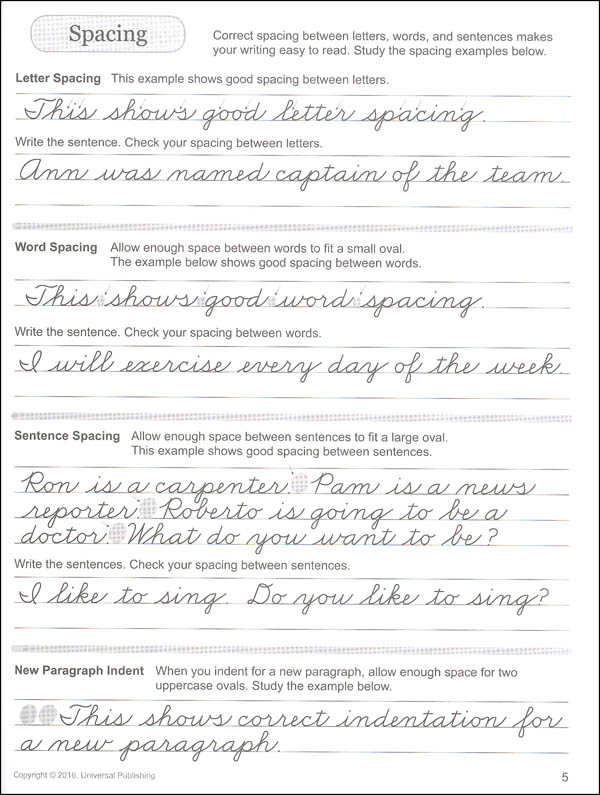 Spacing
Correct spacing between letters, words, and sentences makes
your writing easy to read. Study the spacing examples below.
Letter Spacing This example shows good spacing between letters.
This shows good letter spacing.
Write the sentence. Check your spacing between letters.
Ann was named captain of the team.
Word Spacing Allow enough space between words to fit a small oval.
The example below shows good spacing between words.
This shows good word spacing.
Write the sentence. Check your spacing between words.
I will exercise every day of the week.
Sentence Spacing Allow enough space between sentences to fit a large oval.
This example shows good spacing between sentences.
Ron is a carpenter. Pam is a news
reporter. Roberto is going to be a
doctor. What do you want to be?
Write the sentences. Check your spacing between sentences.
I like to sing. Do you like to sing?
New Paragraph Indent When you indent for a new paragraph, allow enough space for two
uppercase ovals. Study the example below.
This shows correct indentation for
a new paragraph.
Copyright © 2016, Universal Publishing
5